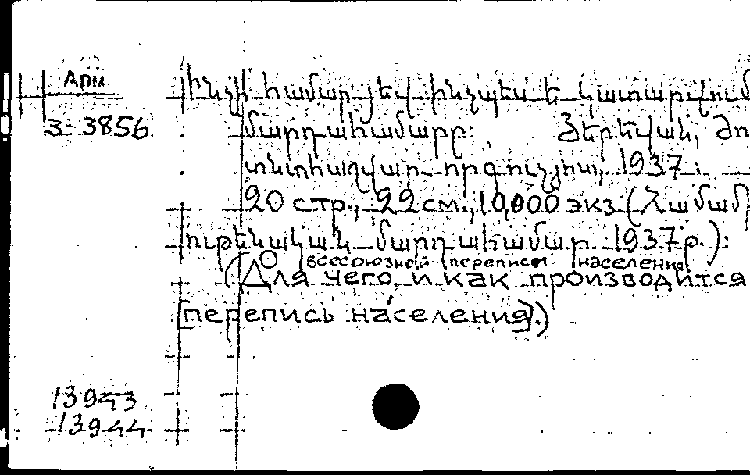 Арм
Ինչի համար յեվ ինչպես ե կատարվում
3-3856
մարդահամարը: Յերեվան,
տնտհաշվառ 1937
20 стр., 22 см., 10,000 экз. (Համամ
ութենական մարդահամար 1937թ.):
всесоюзной переписи населения
(Для чего и как производится
перепись населения).)
13943
13944